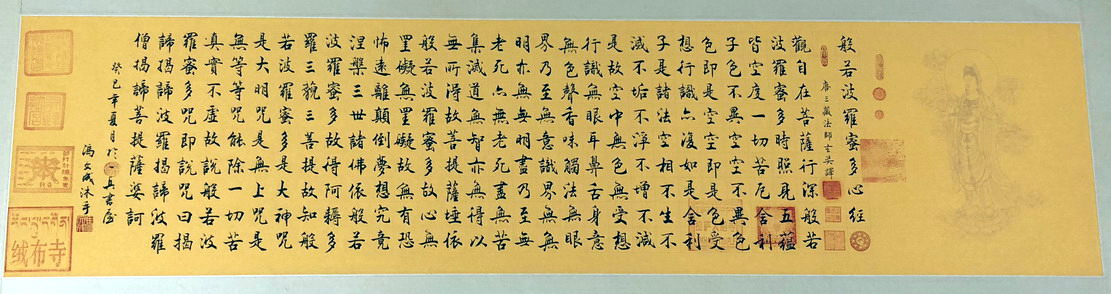 般若波羅蜜多心経
唐三藏法師玄奘譯
觀自在菩薩行深般若
波羅蜜多時照見五蘊
皆空度一切苦厄舍利
子色不異空空不異色
色即是空空即是色受
想行識亦復如是舍利
子是諸法空相不生不
滅不垢不淨不增不減
是故空中無色無受想
行識無眼耳鼻舌身意
無色聲香味觸法無眼
界乃至無意識界無無
明亦無無明盡乃至無
老死亦無老死盡無苦
集滅道無智亦無得以
無所得故菩提薩埵依
般若波羅蜜多故心無
罣礙無罣礙故無有恐
怖遠離顛倒夢想究竟
涅槃三世諸佛依般若
波羅蜜多故得阿耨多
羅三藐三菩提故知般
若波羅蜜多是大神咒
是大明咒是無上咒是
無等等咒能除一切苦
真實不虛故說般若波
羅蜜多咒即說咒曰揭
諦揭諦波羅揭諦波羅
僧揭諦菩提薩婆訶
癸巳年夏月於書屋
馮文成沐手
绒布寺